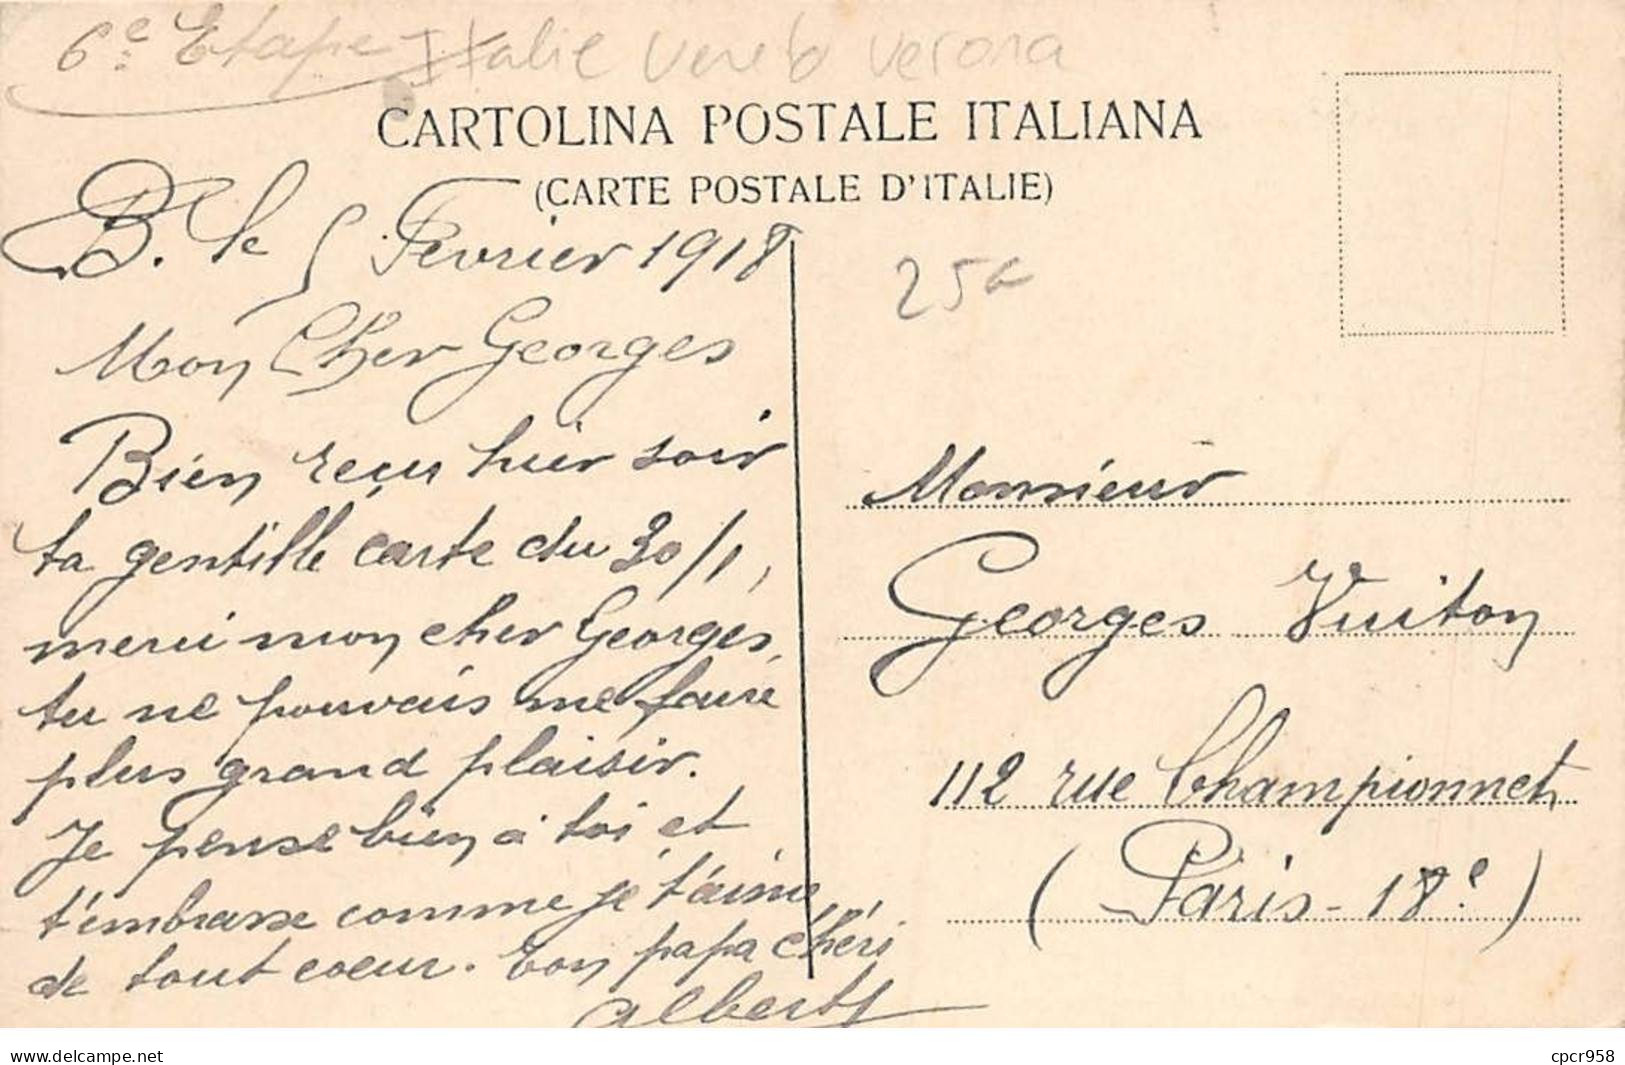 6e Etape Italie Veneto Verona
CARTOLINA POSTALE ITALIANA
(CARTE POSTALE D'ITALIE)
B. le 5 Fevrier 1918
25
Mon Cher Georges
Bien reçu hier soir
ta gentille carte du 30/1,
merci mon cher Georges,
tu ne pouvais me faire
plus grand plaisir.
Je pense bien à toi et
t'embrasse comme je t'aime,
de tout coeur. Ton papa chéri
Albert
Monsieur
Georges Vuiton
112 rue Championnet
(Paris - 18e)
www.delcampe.net
cpcr958